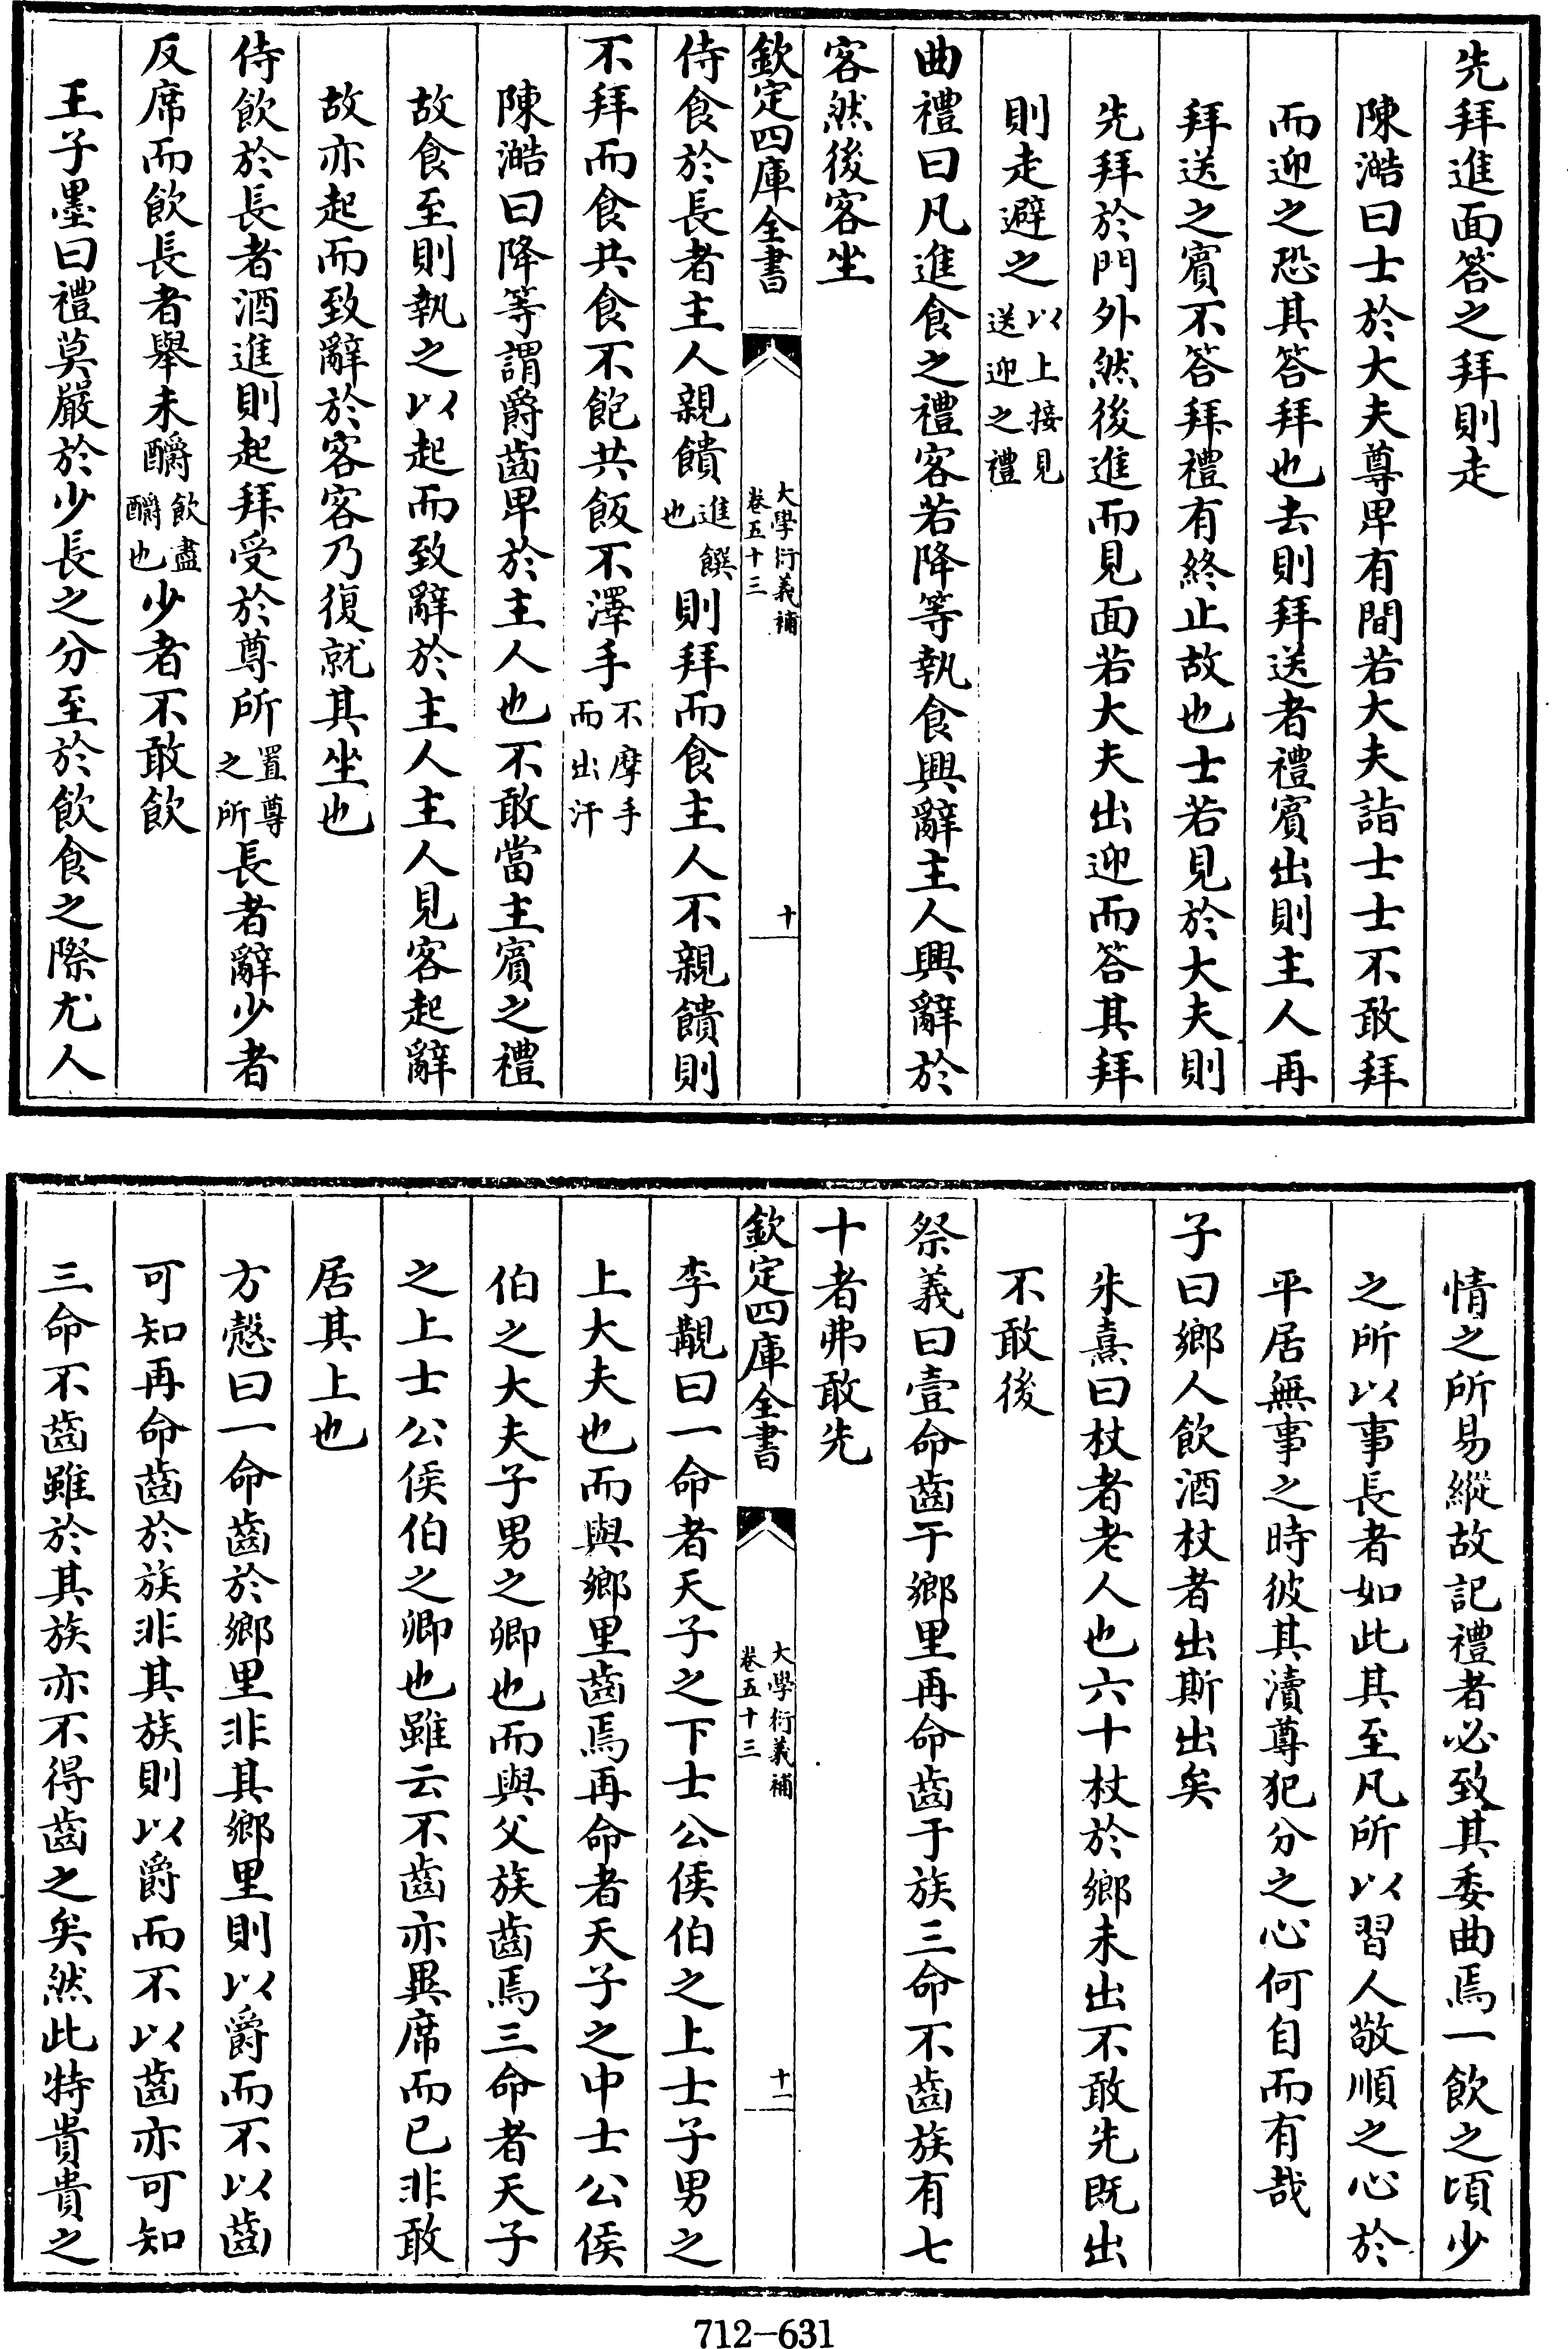 先拜進面答之拜則走
陳澔曰士於大夫尊卑有間若大夫詣士士不敢拜
而迎之恐其答拜也去則拜送者禮賓出則主人再
拜送之賓不答拜禮有終止故也士若見於大夫則
先拜於門外然後進而見面若大夫出迎而答其拜
則走避之以上接見送迎之禮
曲禮曰凡進食之禮客若降等執食興辭主人興辭於
客然後客坐
欽定四庫全書 大學衍義補 卷五十三 十
侍食於長者主人親饋進饌也則拜而食主人不親饋則
不拜而食共食不飽共飯不澤手不摩手而出汗
陳澔曰降等謂爵齒卑於主人也不敢當主賓之禮
故食至則執之以起而致辭於主人主人見客起辭
故亦起而致辭於客客乃復就其坐也
侍飲於長者酒進則起拜受於尊所置尊之所長者辭少者
反席而飲長者舉未釂飲盡釂也少者不敢飲
王子墨曰禮莫嚴於少長之分至於飲食之際尤人
情之所易縱故記禮者必致其委曲焉一飲之頃少
之所以事長者如此其至凡所以習人敬順之心於
平居無事之時彼其瀆尊犯分之心何自而有哉
子曰鄉人飲酒杖者出斯出矣
朱熹曰杖者老人也六十杖於鄉未出不敢先既出
不敢後
祭義曰壹命齒于鄉里再命齒于族三命不齒族有七
十者弗敢先
欽定四庫全書 大學衍義補 卷五十三 十一
李覯曰一命者天子之下士公侯伯之上士子男之
上大夫也而與鄉里齒焉再命者天子之中士公侯
伯之大夫子男之卿也而與父族齒焉三命者天子
之上士公侯伯之卿也雖云不齒亦異席而已非敢
居其上也
方慤曰一命齒於鄉里非其鄉里則以爵而不以齒
可知再命齒於族非其族則以爵而不以齒亦可知
三命不齒雖於其族亦不得齒之矣然此特貴貴之
712-631